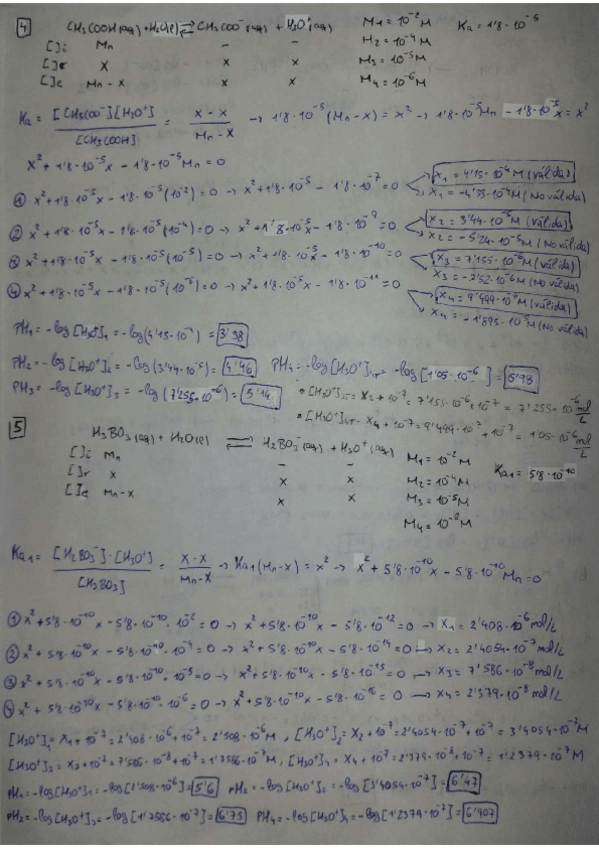 4 CH3COOH(aq) + H2O(l) ⇄ CH3COO⁻(aq) + H3O⁺(aq) M1 = 10⁻² M Ka = 1'8·10⁻⁵
[ ]i Mn – – M2 = 10⁻⁴ M
[ ]r x x x M3 = 10⁻⁵ M
[ ]e Mn-x x x M4 = 10⁻⁶ M
Ka = [CH3COO⁻][H3O⁺] / [CH3COOH] = x·x / Mn-x → 1'8·10⁻⁵(Mn-x) = x² → 1'8·10⁻⁵Mn - 1'8·10⁻⁵x = x²
x² + 1'8·10⁻⁵x - 1'8·10⁻⁵Mn = 0
① x² + 1'8·10⁻⁵x - 1'8·10⁻⁵(10⁻²) = 0 → x² + 1'8·10⁻⁵ - 1'8·10⁻⁷ = 0 x1 = 4'15·10⁻⁴ M (válida)
x1 = -4'33·10⁻⁴ M (No válida)
② x² + 1'8·10⁻⁵x - 1'8·10⁻⁵(10⁻⁴) = 0 → x² + 1'8·10⁻⁵x - 1'8·10⁻⁹ = 0 x2 = 3'44·10⁻⁵ M (válida)
x2 = -5'24·10⁻⁵ M (No válida)
③ x² + 1'8·10⁻⁵x - 1'8·10⁻⁵(10⁻⁵) = 0 → x² + 1'8·10⁻⁵x - 1'8·10⁻¹⁰ = 0 x3 = 7'155·10⁻⁶ M (válida)
x3 = -2'52·10⁻⁶ M (No válida)
④ x² + 1'8·10⁻⁵x - 1'8·10⁻⁵(10⁻⁶) = 0 → x² + 1'8·10⁻⁵x - 1'8·10⁻¹¹ = 0 x4 = 9'499·10⁻⁷ M (válida)
x4 = -1'895·10⁻⁵ M (No válida)
PH1 = -log[H3O⁺]1 = -log(4'15·10⁻⁴) = 3'38
PH2 = -log[H3O⁺]2 = -log(3'44·10⁻⁵) = 4'46 PH4 = -log[H3O⁺]4T = -log[1'05·10⁻⁶] = 5'98
PH3 = -log[H3O⁺]3 = -log(7'255·10⁻⁶) = 5'14 • [H3O⁺]3T = x3 + 10⁻⁷ = 7'155·10⁻⁶ + 10⁻⁷ = 7'255·10⁻⁶ mol/L
• [H3O⁺]4T = x4 + 10⁻⁷ = 9'499·10⁻⁷ + 10⁻⁷ = 1'05·10⁻⁶ mol/L
5 H3BO3(aq) + H2O(l) ⇄ H2BO3⁻(aq) + H3O⁺(aq)
[ ]i Mn – – M1 = 10⁻² M Ka1 = 5'8·10⁻¹⁰
[ ]r x x x M2 = 10⁻⁴ M
[ ]e Mn-x x x M3 = 10⁻⁵ M
Ka1 = [H2BO3⁻]·[H3O⁺] / [H3BO3] = x·x / Mn-x → Ka1(Mn-x) = x² → x² + 5'8·10⁻¹⁰x - 5'8·10⁻¹⁰Mn = 0
① x² + 5'8·10⁻¹⁰x - 5'8·10⁻¹⁰·10⁻² = 0 → x² + 5'8·10⁻¹⁰x - 5'8·10⁻¹² = 0 → x1 = 2'408·10⁻⁶ mol/L
② x² + 5'8·10⁻¹⁰x - 5'8·10⁻¹⁰·10⁻⁴ = 0 → x² + 5'8·10⁻¹⁰x - 5'8·10⁻¹⁴ = 0 → x2 = 2'4054·10⁻⁷ mol/L
③ x² + 5'8·10⁻¹⁰x - 5'8·10⁻¹⁰·10⁻⁵ = 0 → x² + 5'8·10⁻¹⁰x - 5'8·10⁻¹⁵ = 0 → x3 = 7'586·10⁻⁸ mol/L
④ x² + 5'8·10⁻¹⁰x - 5'8·10⁻¹⁰·10⁻⁶ = 0 → x² + 5'8·10⁻¹⁰x - 5'8·10⁻¹⁶ = 0 → x4 = 2'379·10⁻⁸ mol/L
[H3O⁺]1 = x1 + 10⁻⁷ = 2'408·10⁻⁶ + 10⁻⁷ = 2'508·10⁻⁶ M, [H3O⁺]2 = x2 + 10⁻⁷ = 2'4054·10⁻⁷ + 10⁻⁷ = 3'4054·10⁻⁷ M
[H3O⁺]3 = x3 + 10⁻⁷ = 7'586·10⁻⁸ + 10⁻⁷ = 1'7586·10⁻⁷ M, [H3O⁺]4 = x4 + 10⁻⁷ = 2'379·10⁻⁸ + 10⁻⁷ = 1'2379·10⁻⁷ M
PH1 = -log[H3O⁺]1 = -log[2'508·10⁻⁶] = 5'6 PH2 = -log[H3O⁺]2 = -log[3'4054·10⁻⁷] = 6'47
PH3 = -log[H3O⁺]3 = -log[1'7586·10⁻⁷] = 6'75 PH4 = -log[H3O⁺]4 = -log[1'2379·10⁻⁷] = 6'907